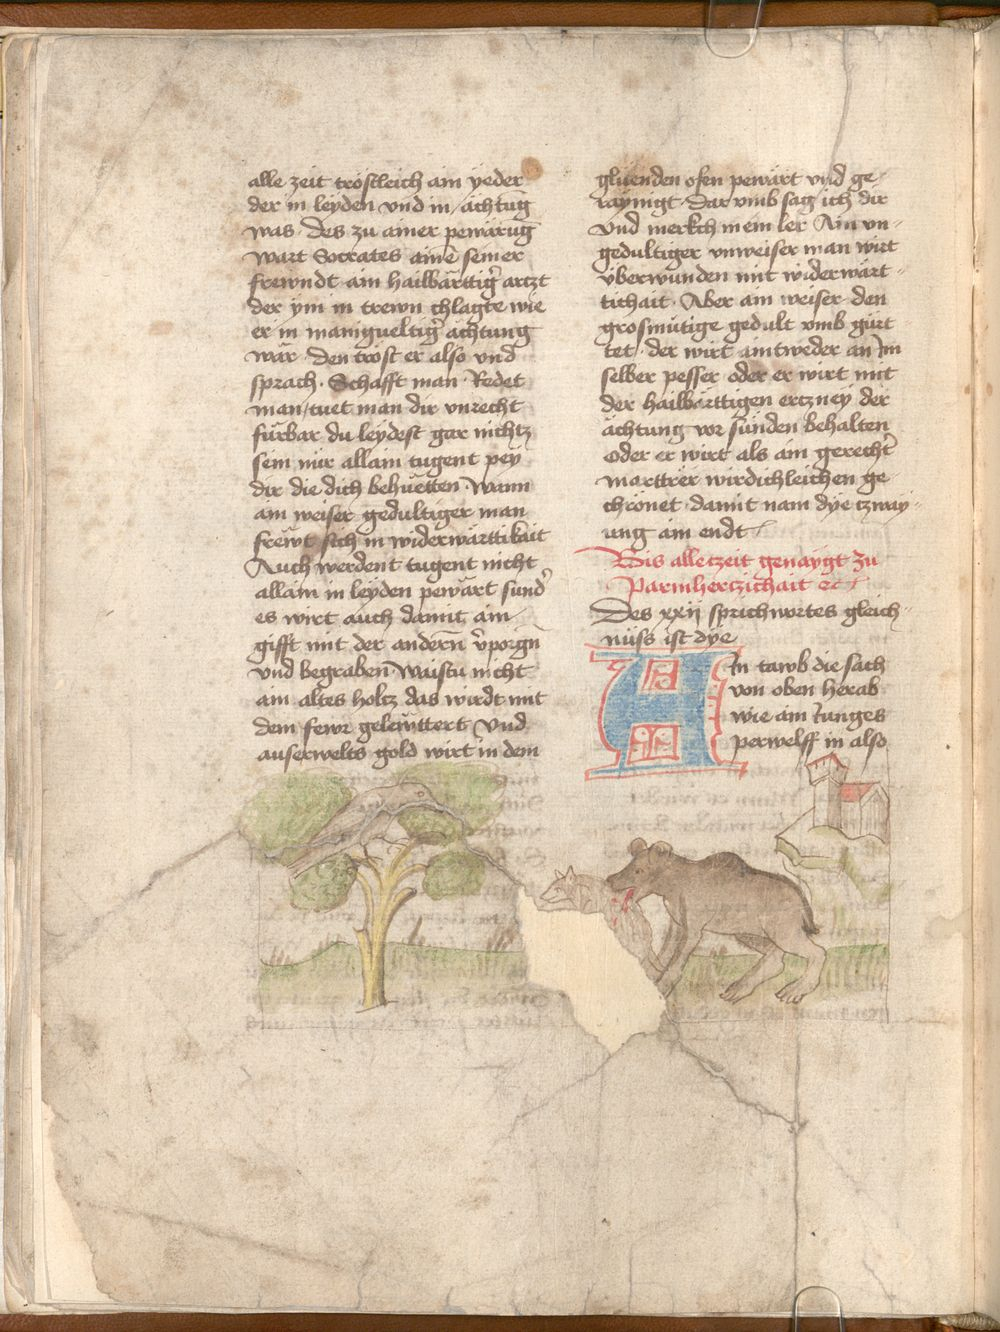 alle zeit tröstleich ain yeder
der in leyden vnd in ächtūg
was · des zu ainer pewärūg
wart Socrates aine seiner
frewndt ain hailbärttig̉ arczt
der ym in trewn chlagte wie
er in manigueltig̉ ächtung
wär · den tröst er also vnd
sprach · Schafft man · Redet
man / tuet man dir vnrecht
fürbar du leydest gar nichtz
sein nür allain tugent pey
dir die dich behuetten · Wann
ain weiser gedultiger man
frëwt sich in widerwärttikait
Auch werdent tugent nicht
allain in leyden pewärt sund̉
es wirt auch damit ain
gifft mit der anderñ v̉porgñ
vnd begraben Waistu nicht
ain altes holtz das wirdt mit
dem fewr gelewttert Vnd
auserwelts gold wirt in dem
glüenden ofen pewärt vnd ge-
raynigt · Dar vmb sag ich dir
vnd merkch mein ler Ain vn-
gedultiger vnweiser man wirt
vberwunden mit widerwärt-
tichait · Aber ain weiser · den
grosmütige gedult vmb gürt
tet · der wirt aintweder an Im
selber pesser oder er wirt mit
der hailbärttigen erczney der
ächtung vor sünden behalten
oder er wirt als ain gerecht̉
marttrer wirdichleichen ge
chrönet · damit nam dye czway-
ung ain endt
Bis alleczeit genaygt zu
Parmherczichait ec
Des xxij sprichwortes gleich-
nüss ist dye
In tawb die sach
von oben herab
wie ain Iunges
perwelff in also